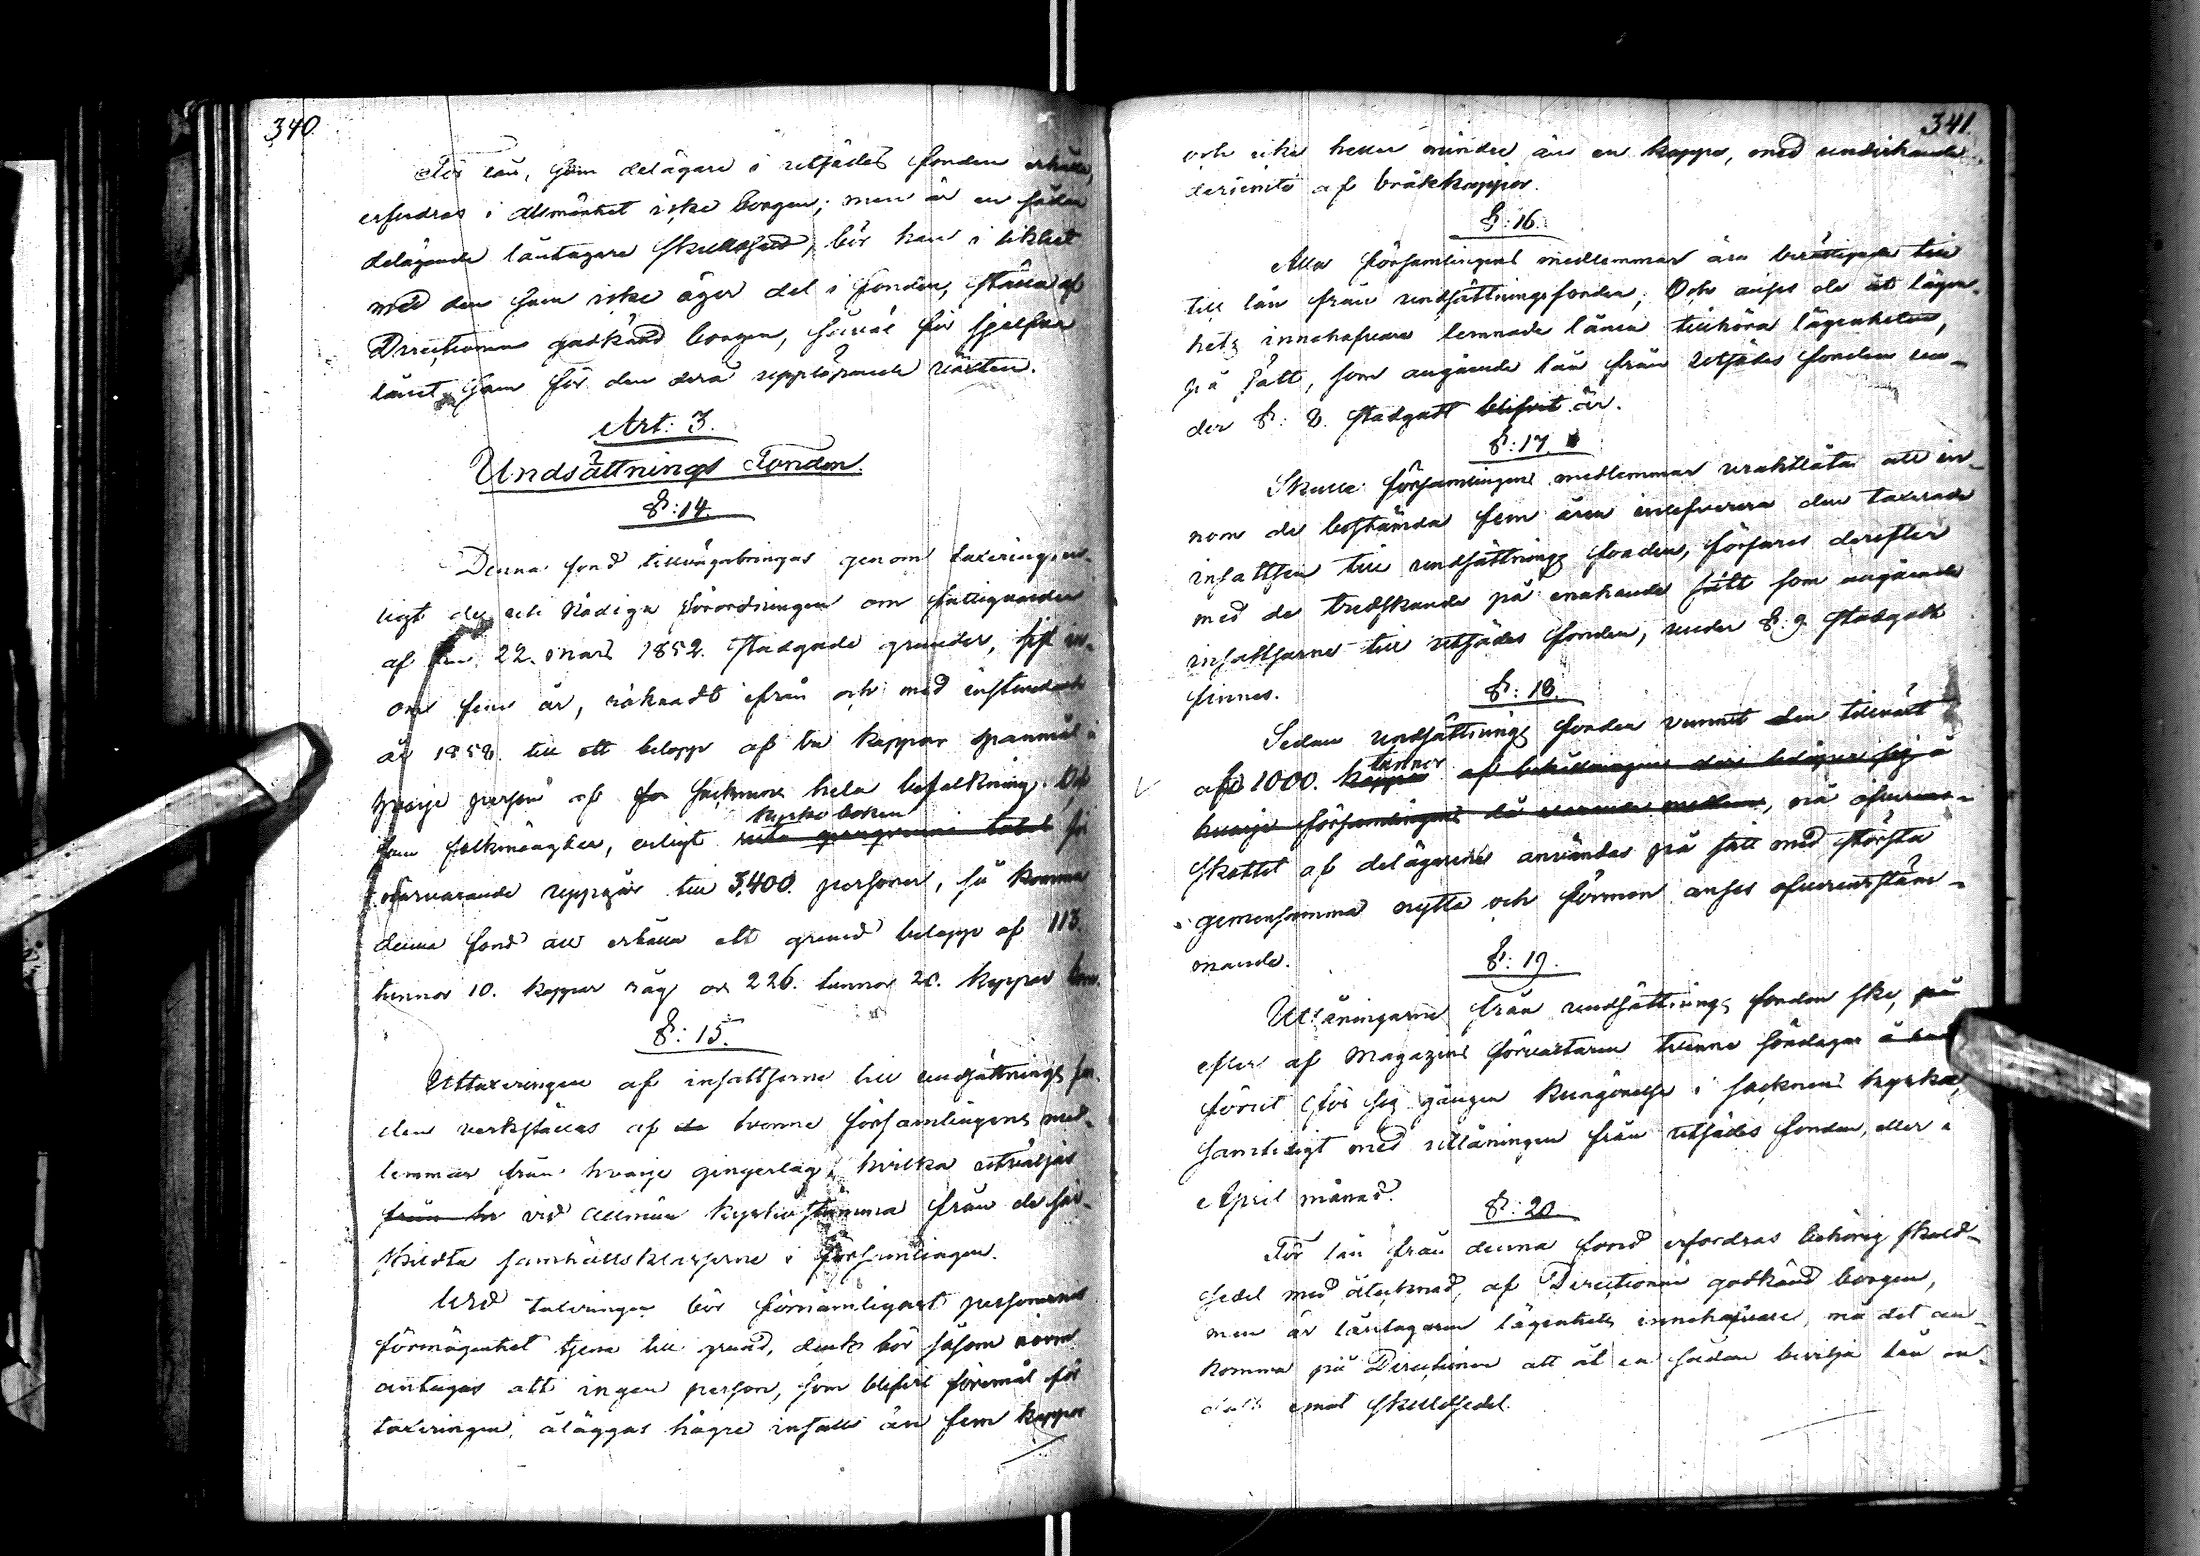 340.
För lån, som delägare i utsädes fonden erhålla,
erfordras i allmänhet icke borgen; men är en sådan
delägande låntagare skuldsatt, bör han i likhet
med den som icke äger del i fonden, ställa af
Directionen godkänd borgen, såväl för sjelfva
lånet som för den derå upplöpande räntan.
Art: 3.
Undsättnings Fonden.
§: 14.
Denna fond tillvägabringas genom taxering en-
ligt de uti Nådiga Förordningen om fattigvården
af den 22. Mars 1852. stadgade grunder, sist in-
om fem år, räknadt ifrån och med instundande
år 1858. till ett belopp af två kappar spanmål i
hvarje person af for Socknens hela befolkning. Då
som folkmängden, enligt kyrko boken för
närvarande uppgår till 3,400. personer, så kommer
denna fond att erhålla ett grund belopp af 113.
tunnor 10. kappar råg och 226. tunnor 20. kappar korn.
§: 15.
Uttaxeringen af insattserne till undsättnings fon-
den verkställes af de tvenne församlingens med-
lemmar från hvarje gingerlag, hvilka utväljas
från be vid allmän kyrkostämma från de sär-
skildta samhällsklasserne i församlingen.
Wid taxeringen bör förnämligast personernes
förmögenhet tjena till grund, dock bör såsom norm
antagas att ingen person, som blifvit föremål för
taxeringen, åläggas högre insatts än fem kappar
341.
och icke heller mindre än en kappa, med undvikande
derjemte af bråkkappar.
§: 16.
Alla församlingens medlemmar äro berättigade till
till lån från undsättningsfonden; Och anses de åt lägen-
hets innehafvare lemnade lånen tillhöra lägenheten,
på sätt, som angående lån från Utsädes fonden un-
der §: 8. stadgatt blifvit är.
§: 17.
Skulle församlingens medlemmar uraktlåta att in-
nom de bestämda fem åren inlefverera den taxerade
insattsen till undsättnings fonden, förfares derefter
med de tredskande på enahanda sätt som angående
insattserne till utsädes fonden, under §. 9 stadgatt
finnes.
§: 18.
Sedan undsättnings fonden vunnit den tillväxt
af 1000. tunnor kappar af behållningen deri belöper sig å
hvarje församlingens då varande medlem, må öfverns-
skottet af delägarene användas på sätt med största
gemensamma nytta och förmon anses öfverensstäm-
mande.
§: 19.
Utlåningarne från undsättnings fonden ske, på
efter af Magazins förvaltaren tvenne söndagar å rad
förut för sig gången kungörelse i Socknens kyrka,
samtidigt med utlåningen från utsädes fonden, eller i
April månad.
§: 20.
För lån från denna fond erfordras behörig skuld-
sedel med åtecknad, af Directionen godkänd borgen,
men är låntagaren lägenhets innehafvare, må det an-
komma på Directionen att åt en sådan bevilja lån en-
dast emot skuldsedel.